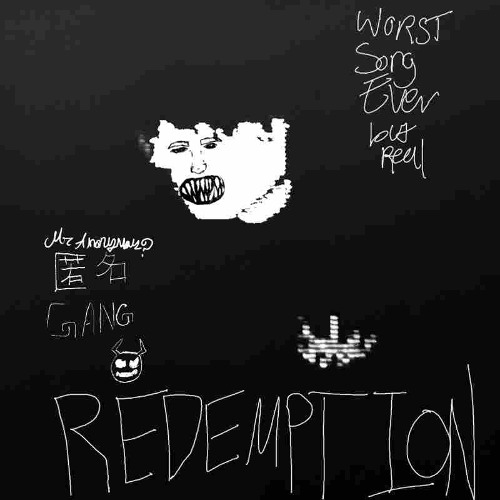 WORST
Song
Ever
but
Mr Anonymous
匿名
GANG
REDEMPTION